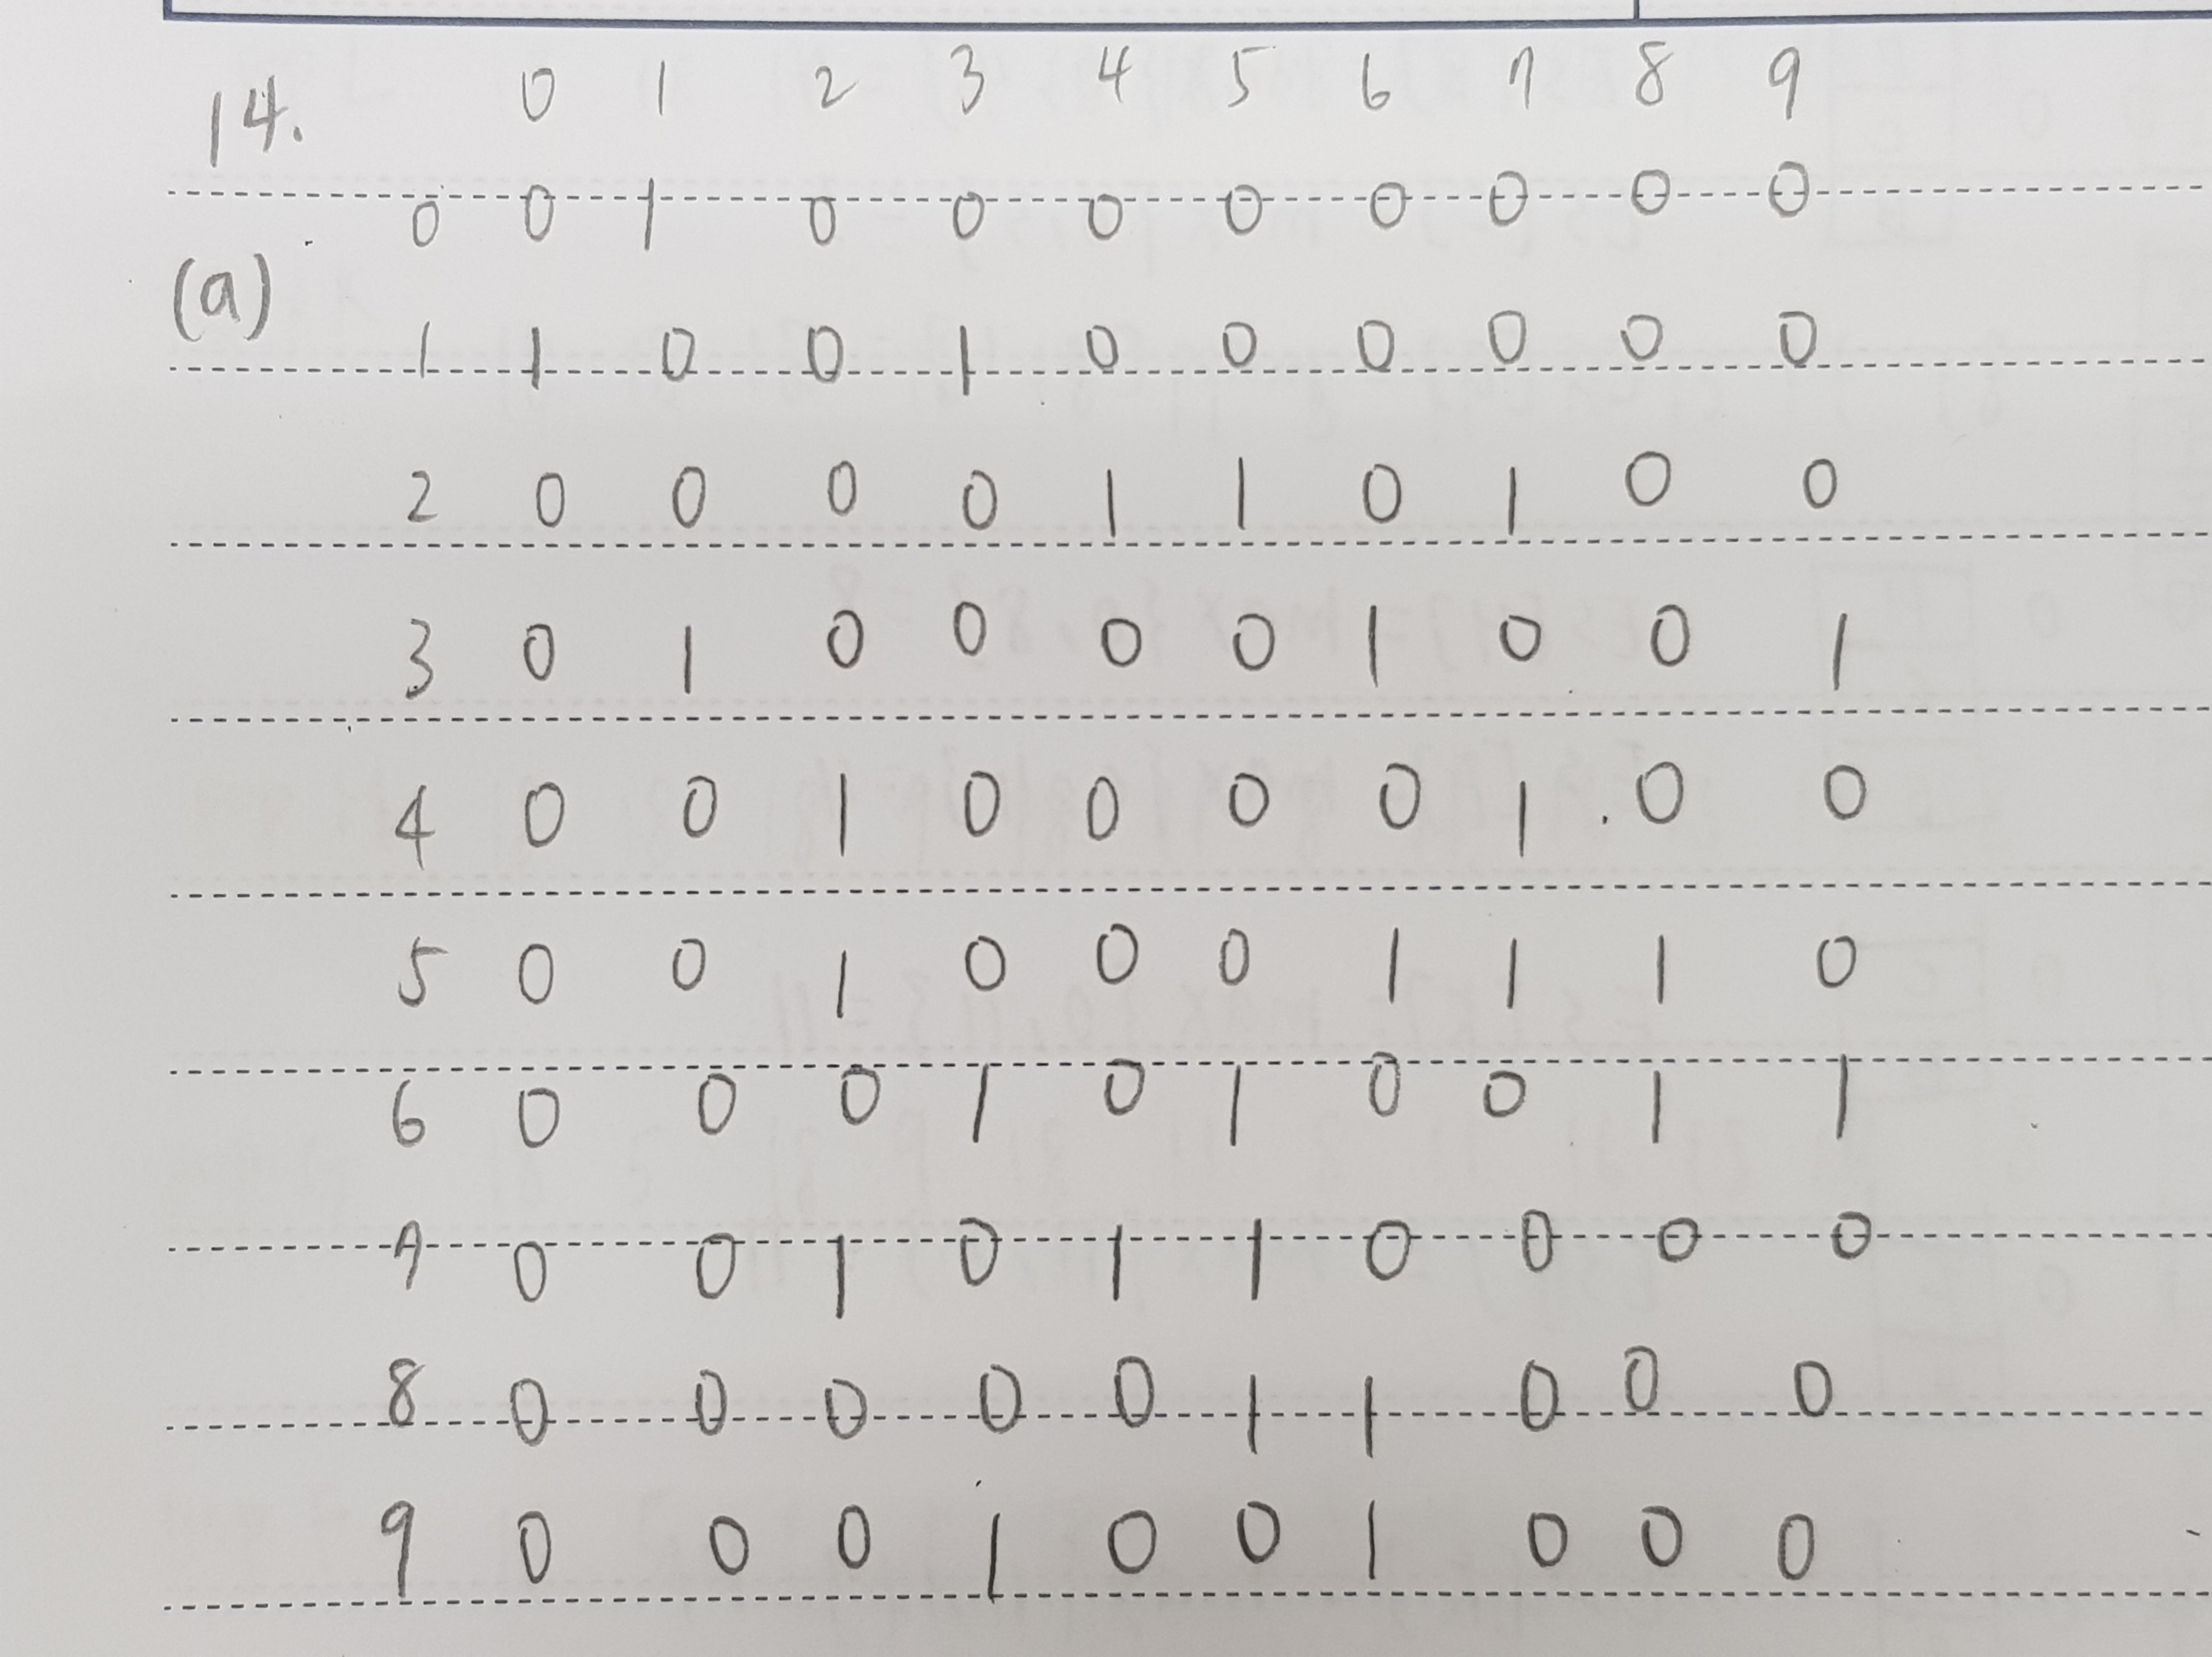 14. 0 1 2 3 4 5 6 7 8 9
0 0 1 0 0 0 0 0 0 0 0
(a)
1 1 0 0 1 0 0 0 0 0 0
2 0 0 0 0 1 1 0 1 0 0
3 0 1 0 0 0 0 1 0 0 1
4 0 0 1 0 0 0 0 1 0 0
5 0 0 1 0 0 0 1 1 1 0
6 0 0 0 1 0 1 0 0 1 1
7 0 0 1 0 1 1 0 0 0 0
8 0 0 0 0 0 1 1 0 0 0
9 0 0 0 1 0 0 1 0 0 0